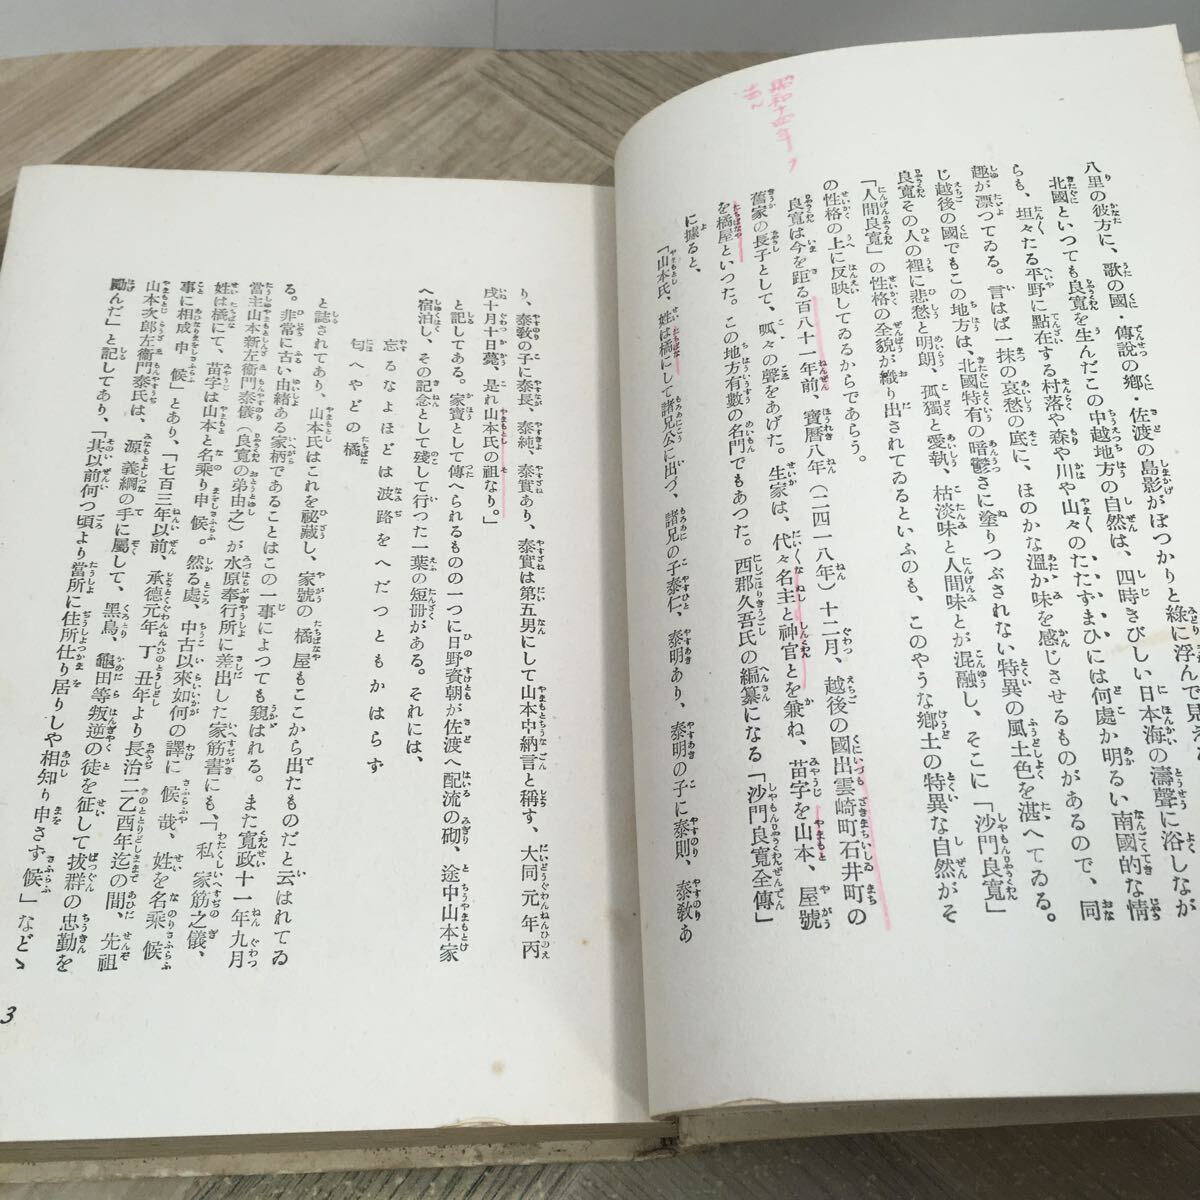 八里の彼方に、歌の國・傳說の鄕・佐渡の島影がぽつかりと綠に浮んで見え
北國といつても良寬を生んだこの中越地方の自然は、四時きびしい日本海の濤聲に浴しなが
らも、坦々たる平野に點在する村落や森や川や山々のたたずまひには何處か明るい南國的な情
趣が漂つてゐる。言はば一抹の哀愁の底に、ほのかな溫か味を感じさせるものがあるので、同
じ越後の國でもこの地方は、北國特有の暗鬱さに塗りつぶされない特異の風土色を湛へてゐる。
良寬その人の裡に悲愁と明朗、孤獨と愛執、枯淡味と人間味とが混融し、そこに「沙門良寬」
「人間良寬」の性格の全貌が織り出されてゐるといふのも、このやうな鄕土の特異な自然がそ
の性格の上に反映してゐるからであらう。
良寬は今を距る百八十一年前、寶曆八年(二四一八年)十二月、越後の國出雲崎町石井町の
舊家の長子として、呱々の聲をあげた。生家は、代々名主と神官とを兼ね、苗字を山本、屋號
を橘屋といつた。この地方有數の名門でもあつた。西郡久吾氏の編纂になる「沙門良寬全傳」
に據ると、
「山本氏、姓は橘にして諸兄公に出づ、諸兄の子泰仁、泰明あり、泰明の子に泰則、泰敎あ
昭和十四年
り、泰敎の子に泰長、泰純、泰實あり、泰實は第五男にして山本中納言と稱す、大同元年丙
戌十月十日薨、是れ山本氏の祖なり。」
と記してある。家寶として傳へられるものの一つに日野資朝が佐渡へ配流の砌、途中山本家
へ宿泊し、その記念として殘して行つた一葉の短册がある。それには、
忘るなよほどは波路をへだつともかはらず
匂へやどの橘
と誌されてあり、山本氏はこれを祕藏し、家號の橘屋もここから出たものだと云はれてゐ
る。非常に古い由緖ある家柄であることはこの一事によつても窺はれる。また寬政十一年九月
當主山本新左衞門泰儀(良寬の弟由之)が水原奉行所に差出した家筋書にも、「私家筋之儀、
姓は橘にて、苗字は山本と名乘り申候。然る處、中古以來如何の譯に候哉、姓を名乘候
事に相成申候」とあり、「七百三年以前、承德元年丁丑年より長治二乙酉年迄の間、先祖
山本次郎左衞門泰氏は、源義綱の手に屬して、黑鳥、龜田等叛逆の徒を征して拔群の忠勤を
勵んだ」と記してあり、「其以前何つ頃より當所に住所仕り居りしや相知り申さず候」などゝ
3